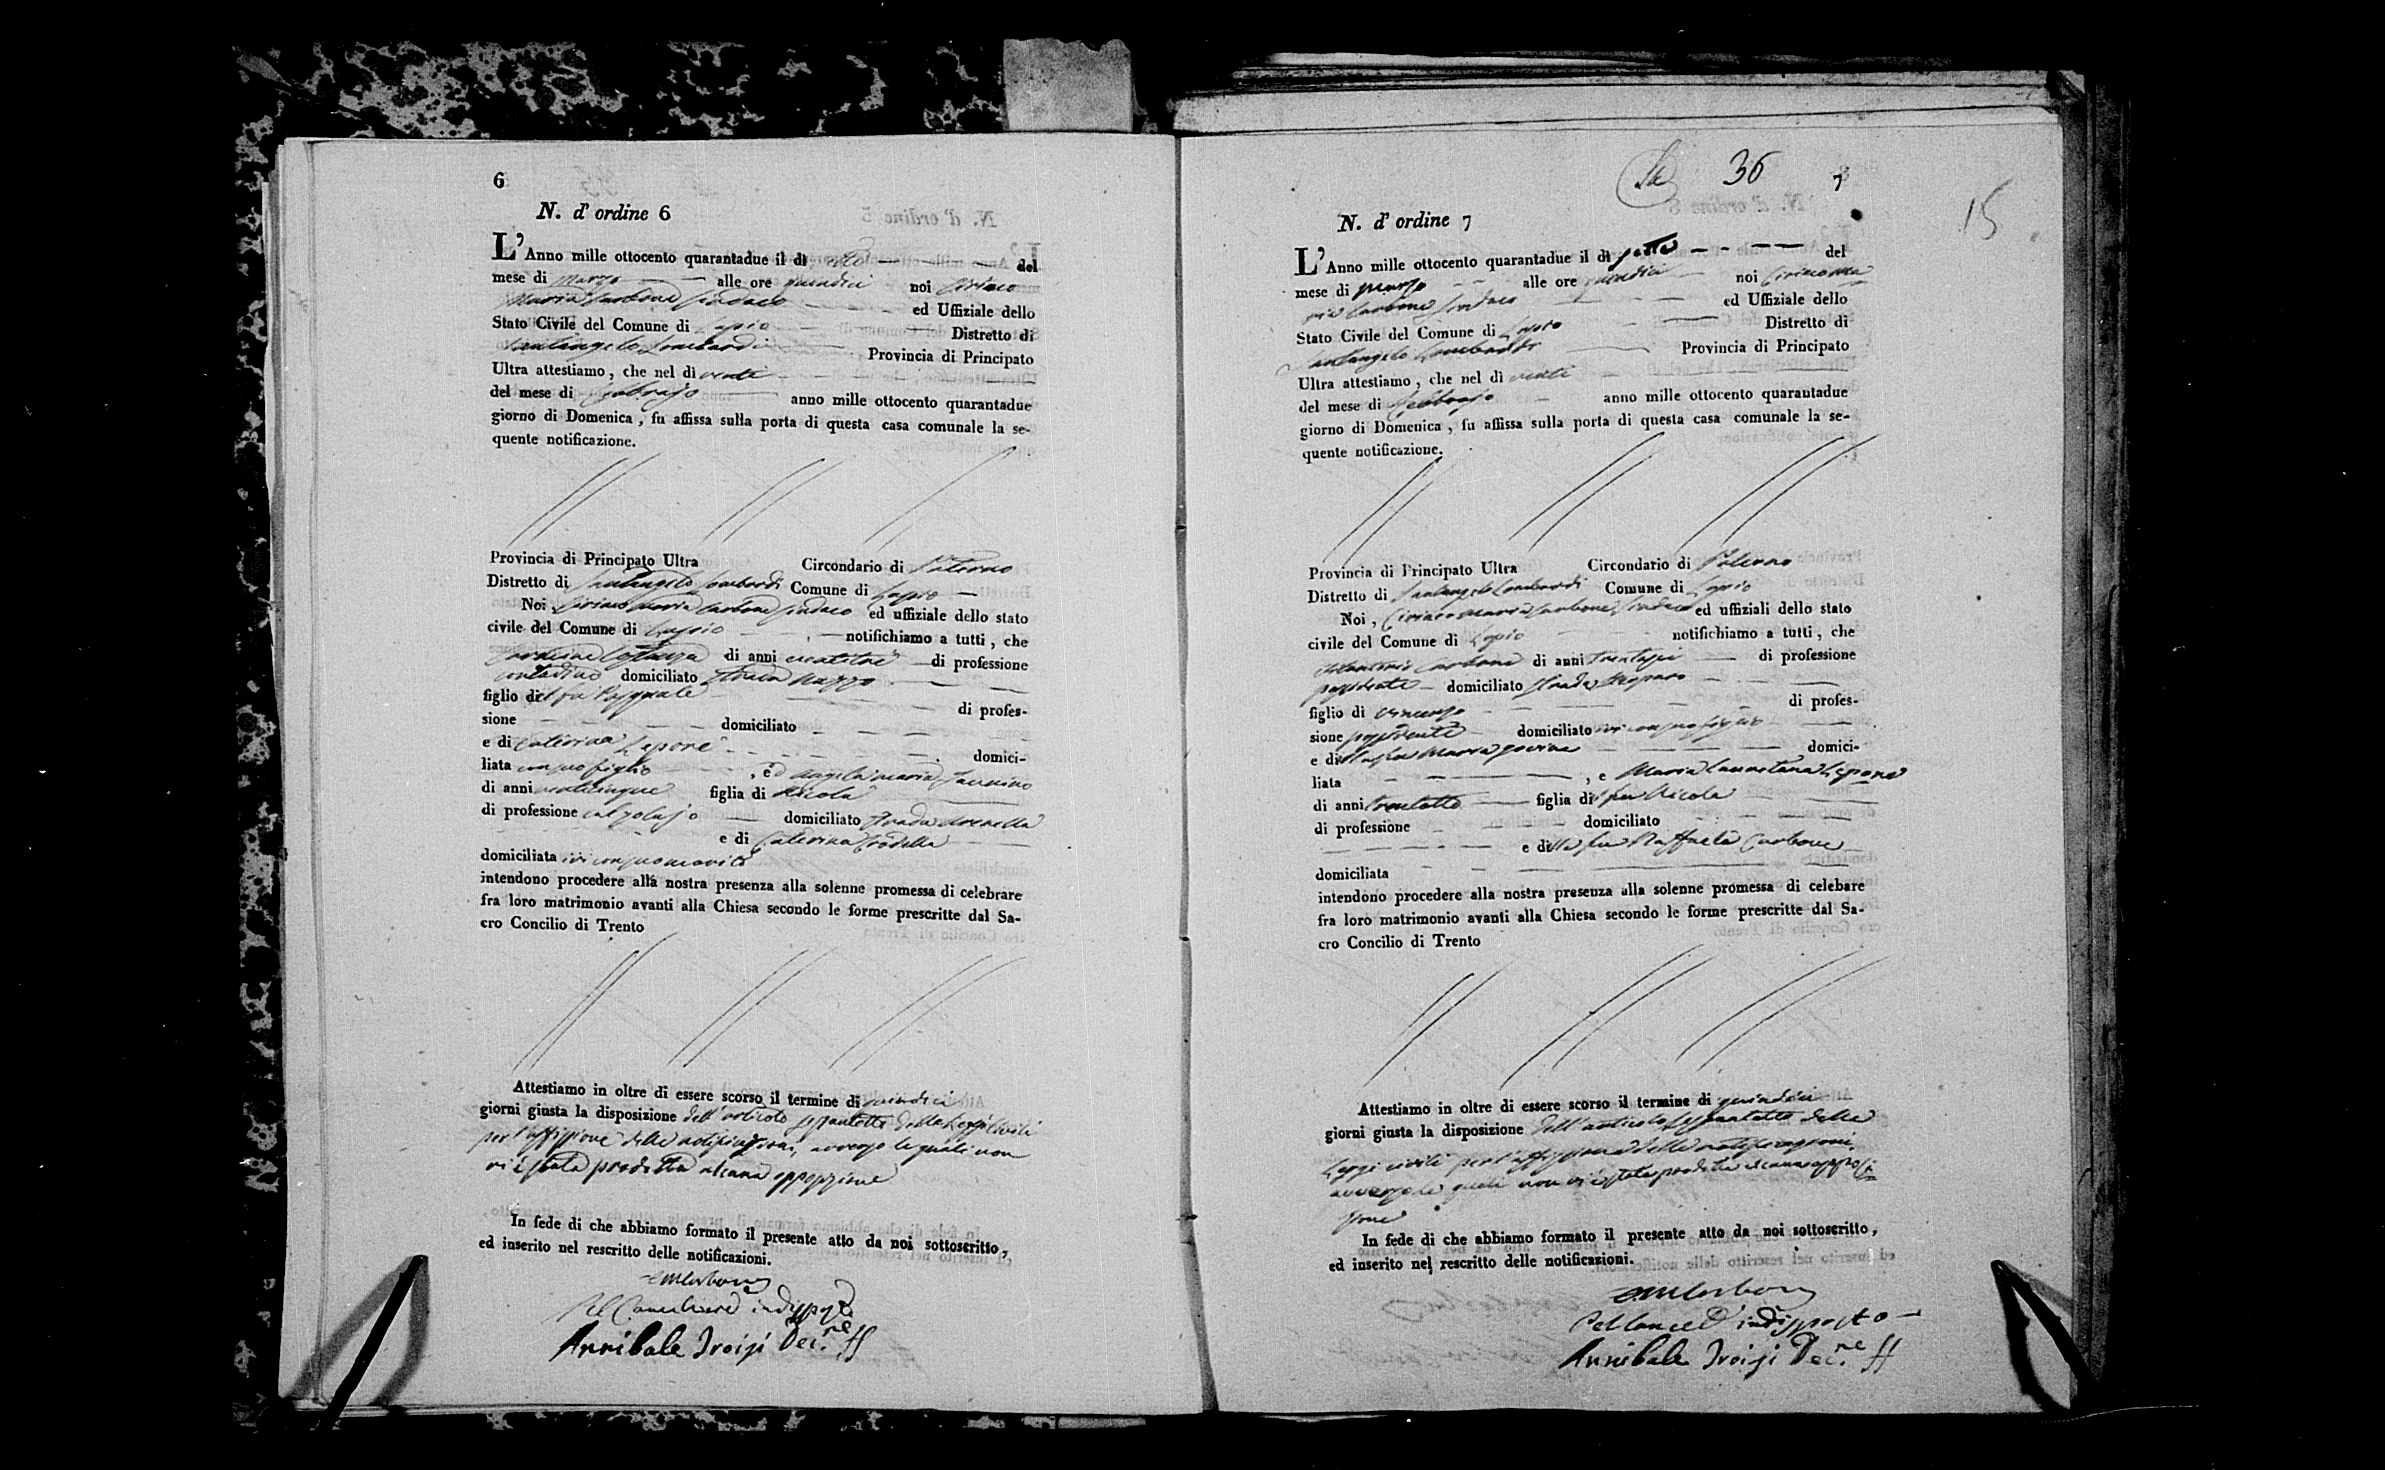 6
N. d' ordine 6
L'Anno mille ottocento quarantadue il dì otto del
mese di Marzo alle ore quindici noi Ciriaco
Maria Carbone Sindaco ed Uffiziale dello
Stato Civile del Comune di Lapio Distretto di
Santangelo Lombardi Provincia di Principato
Ultra attestiamo, che nel dì venti
del mese di Febrajo anno mille ottocento quarantadue
giorno di Domenica, fu affissa sulla porta di questa casa comunale la se-
quente notificazione.
Provincia di Principato Ultra Circondario di Paterno
Distretto di Santangelo Lombardi Comune di Lapio
Noi Ciriaco Maria Carbone Sindaco ed uffiziale dello stato
civile del Comune di Lapio notifichiamo a tutti, che
di anni di professione
contadino domiciliato strada
figlio del fu Pasquale di profes-
sione domiciliato
e di Caterina Lepore domici-
liata con suo figlio, ed Angela Maria
di anni venticinque figlia di Nicola
di professione calzolajo domiciliato strada
e di Caterina
domiciliata ivi con suo marito
intendono procedere alla nostra presenza alla solenne promessa di celebrare
fra loro matrimonio avanti alla Chiesa secondo le forme prescritte dal Sa-
cro Concilio di Trento
Attestiamo in oltre di essere scorso il termine di quindici
giorni giusta la disposizione dell'articolo sessantotto delle Leggi Civili
per l'affissione delle notificazioni, avverso le quali non
vi è stata prodotta alcuna opposizione
In fede di che abbiamo formato il presente atto da noi sottoscritto,
ed inserito nel rescritto delle notificazioni.
CMCarbone
Il Cancelliere indisposto
Annibale Troisi Dec.ne ff
36
7
15
N. d' ordine 7
L'Anno mille ottocento quarantadue il dì otto del
mese di Marzo alle ore quindici noi Ciriaco Ma
ria Carbone Sindaco ed Uffiziale dello
Stato Civile del Comune di Lapio Distretto di
Santangelo Lombardi Provincia di Principato
Ultra attestiamo, che nel dì venti
del mese di Febrajo anno mille ottocento quarantadue
giorno di Domenica, fu affissa sulla porta di questa casa comunale la se-
quente notificazione.
Provincia di Principato Ultra Circondario di Paterno
Distretto di Santangelo Lombardi Comune di Lapio
Noi, Ciriaco Maria Carbone Sindaco ed uffiziali dello stato
civile del Comune di Lapio notifichiamo a tutti, che
Carbone di anni trentasei di professione
possidente domiciliato strada
figlio di Vincenzo di profes-
sione possidente domiciliato ivi con suo figlio
e della fu Maria domici-
liata, e Maria Lauretana Lepore
di anni trentotto figlia del fu Nicola
di professione domiciliato
e della fu Raffaela Carbone
domiciliata
intendono procedere alla nostra presenza alla solenne promessa di celebare
fra loro matrimonio avanti alla Chiesa secondo le forme prescritte dal Sa-
cro Concilio di Trento
Attestiamo in oltre di essere scorso il termine di quindici
giorni giusta la disposizione dell'articolo sessantotto delle
Leggi civili per l'affissione delle notificazioni,
avverso le quali non vi è stata prodotta alcuna opposi
zione
In fede di che abbiamo formato il presente atto da noi sottoscritto,
ed inserito nel rescritto delle notificazioni.
CMCarbone
Pel Cancel indisposto
Annibale Troisi Dec.ne ff